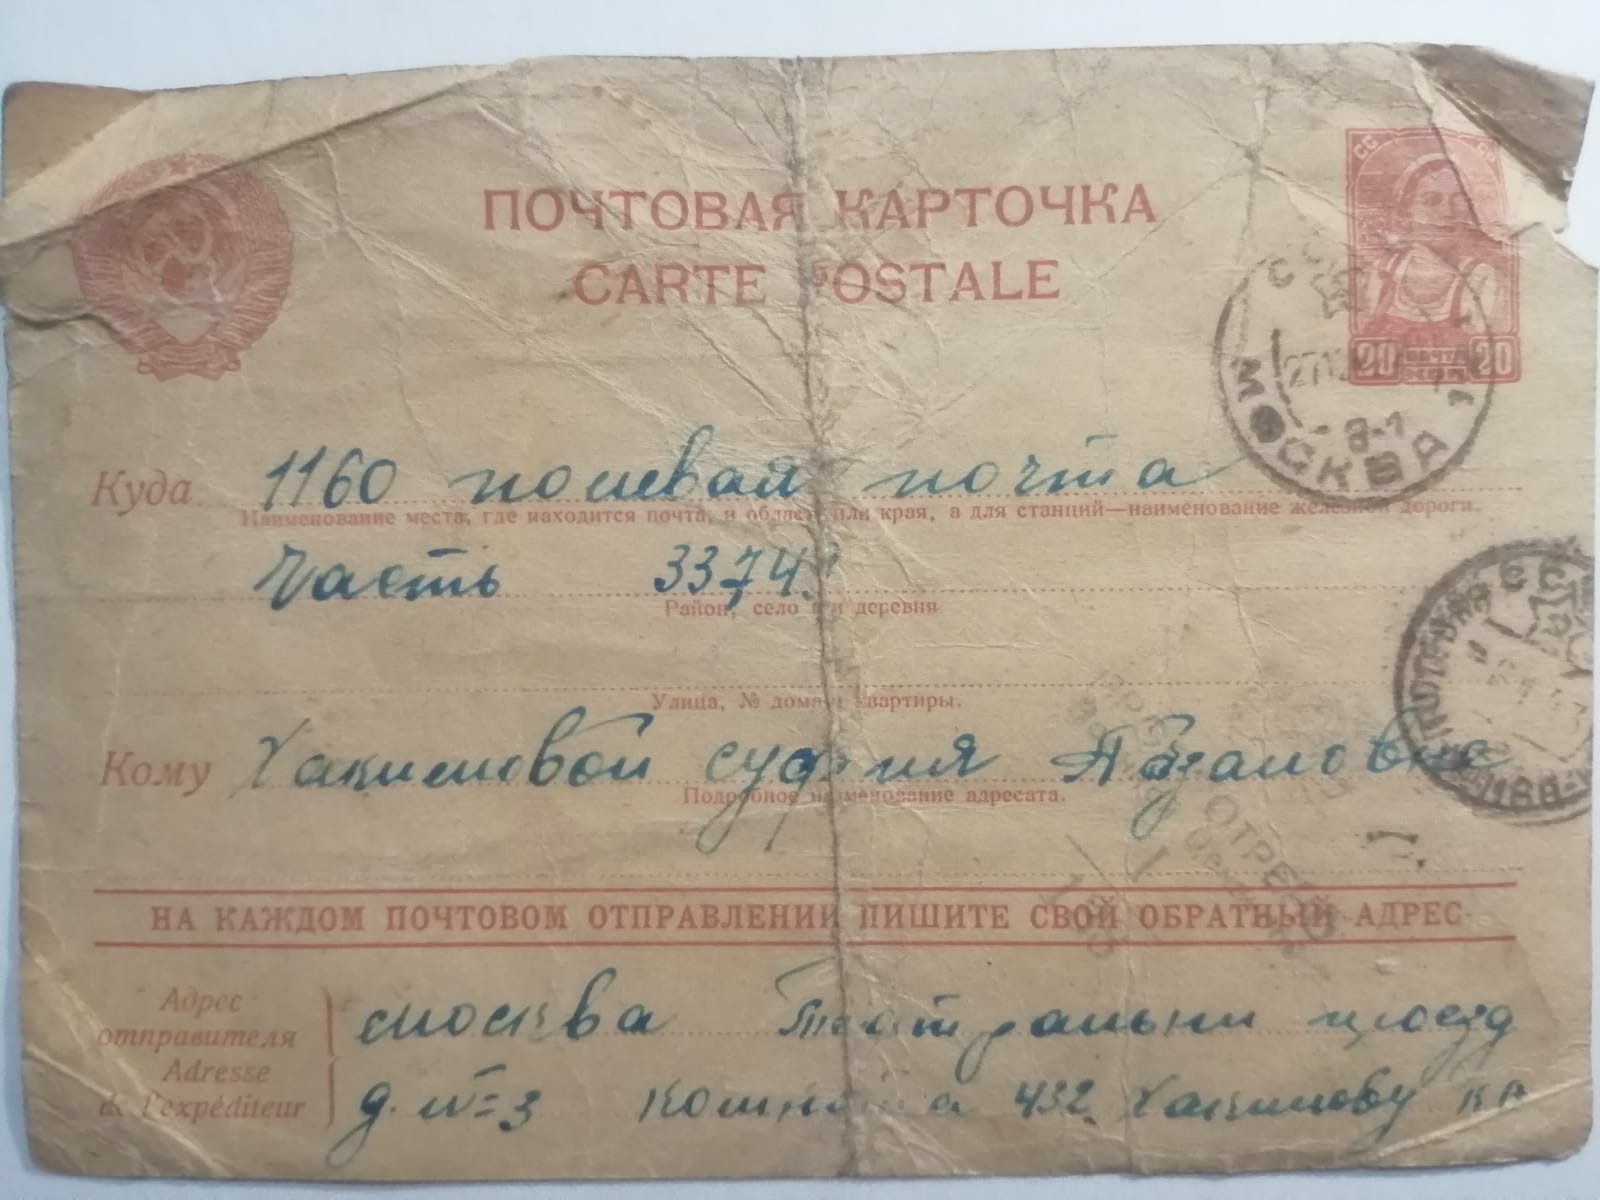 ПОЧТОВАЯ КАРТОЧКА
CARTE POSTALE
СССР
20 ПОЧТА 20
МОСКВА
8-1
Куда 1160 полевая почта
Наименование места, где находится почта, и области или края, а для станций—наименование железной дороги.
Часть 3374
Район, село или деревня
Улица, № дома и квартиры.
Кому Хакимовой суфия
Подробное наименование адресата.
НА КАЖДОМ ПОЧТОВОМ ОТПРАВЛЕНИИ ПИШИТЕ СВОЙ ОБРАТНЫЙ АДРЕС
Адрес отправителя
Adresse de l'expéditeur
москва Театральни проезд
д. №=3 комната 432 Хакимову